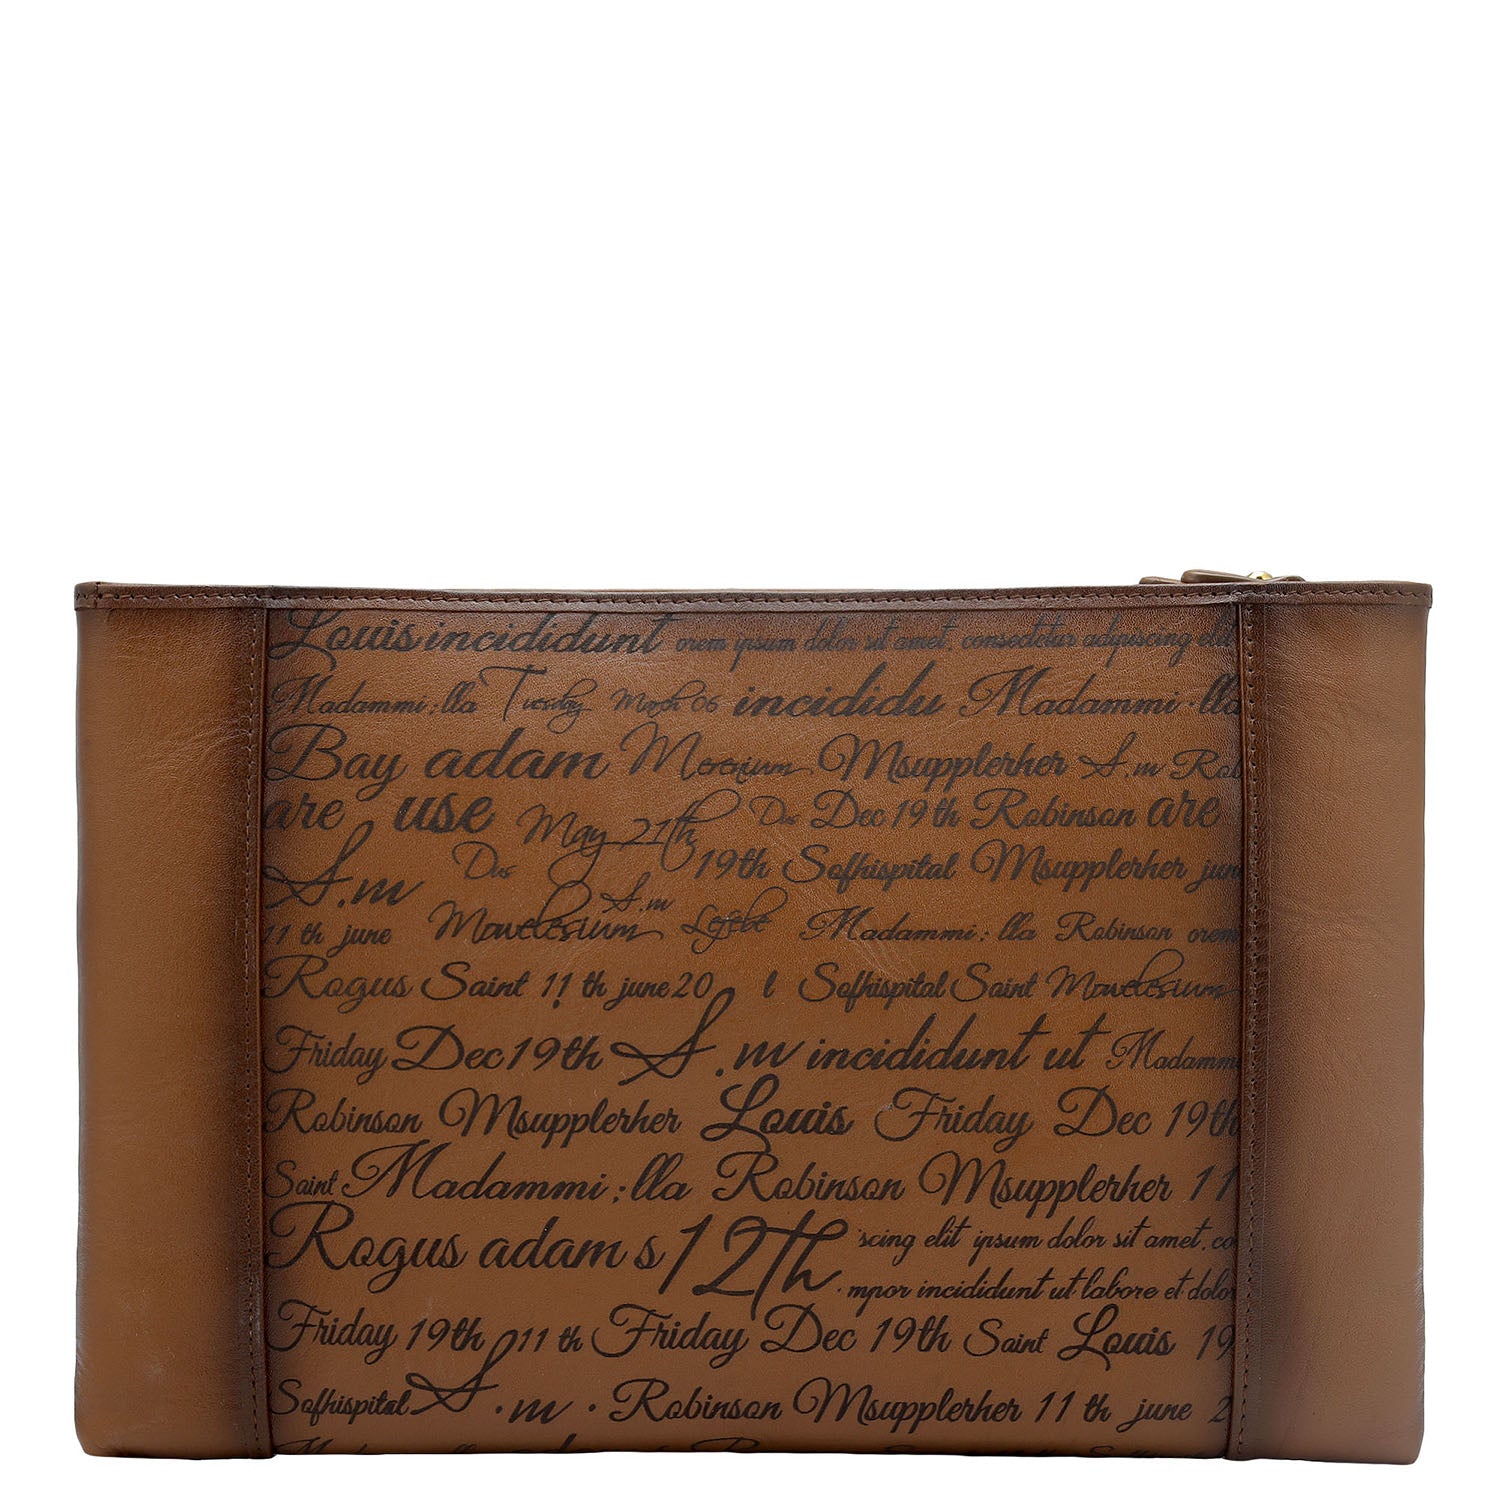 Louis incididunt orem ipsum dolor sit amet, consectetur adipiscing elit
Madammi:lla Tuesday March 06 incididu Madammi:lla
Bay adam Merenium Msupplerher S.m Rob
are use May 21th Das Dec 19th Robinson are
S.m Das 19th Sofhispital Msupplerher jun
11 th june Mowelesium S.m Madammi: lla Robinson orem
Rogus Saint 11 th june 20 l Sofhispital Saint Mowelesium
Friday Dec 19th S.m incididunt ut Madammi
Robinson Msupplerher Louis Friday Dec 19th
Saint Madammi:lla Robinson Msupplerher 11
Rogus adam s 12th scing elit ipsum dolor sit amet, co
mpor incididunt ut labore et dolor
Friday 19th 11 th Friday Dec 19th Saint Louis 19
Sofhispital S.m . Robinson Msupplerher 11 th june 2